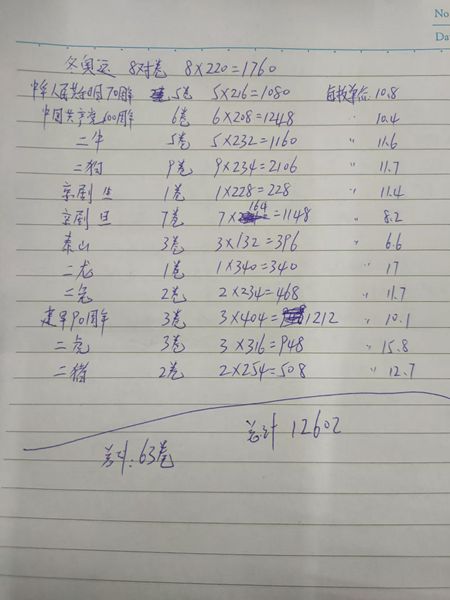 No
Da
冬奥运 8对卷 8×220=1760
中华人民共和国70周年 5卷 5×216=1080 每枚单价 10.8
中国共产党100周年 6卷 6×208=1248 〃 10.4
二牛 5卷 5×232=1160 〃 11.6
二狗 9卷 9×234=2106 〃 11.7
京剧生 1卷 1×228=228 〃 11.4
京剧旦 7卷 7×164=1148 〃 8.2
泰山 3卷 3×132=396 〃 6.6
二龙 1卷 1×340=340 〃 17
二兔 2卷 2×234=468 〃 11.7
建军90周年 3卷 3×404=1212 〃 10.1
二虎 3卷 3×316=948 〃 15.8
二猪 2卷 2×254=508 〃 12.7
总计 12602
总计:63卷